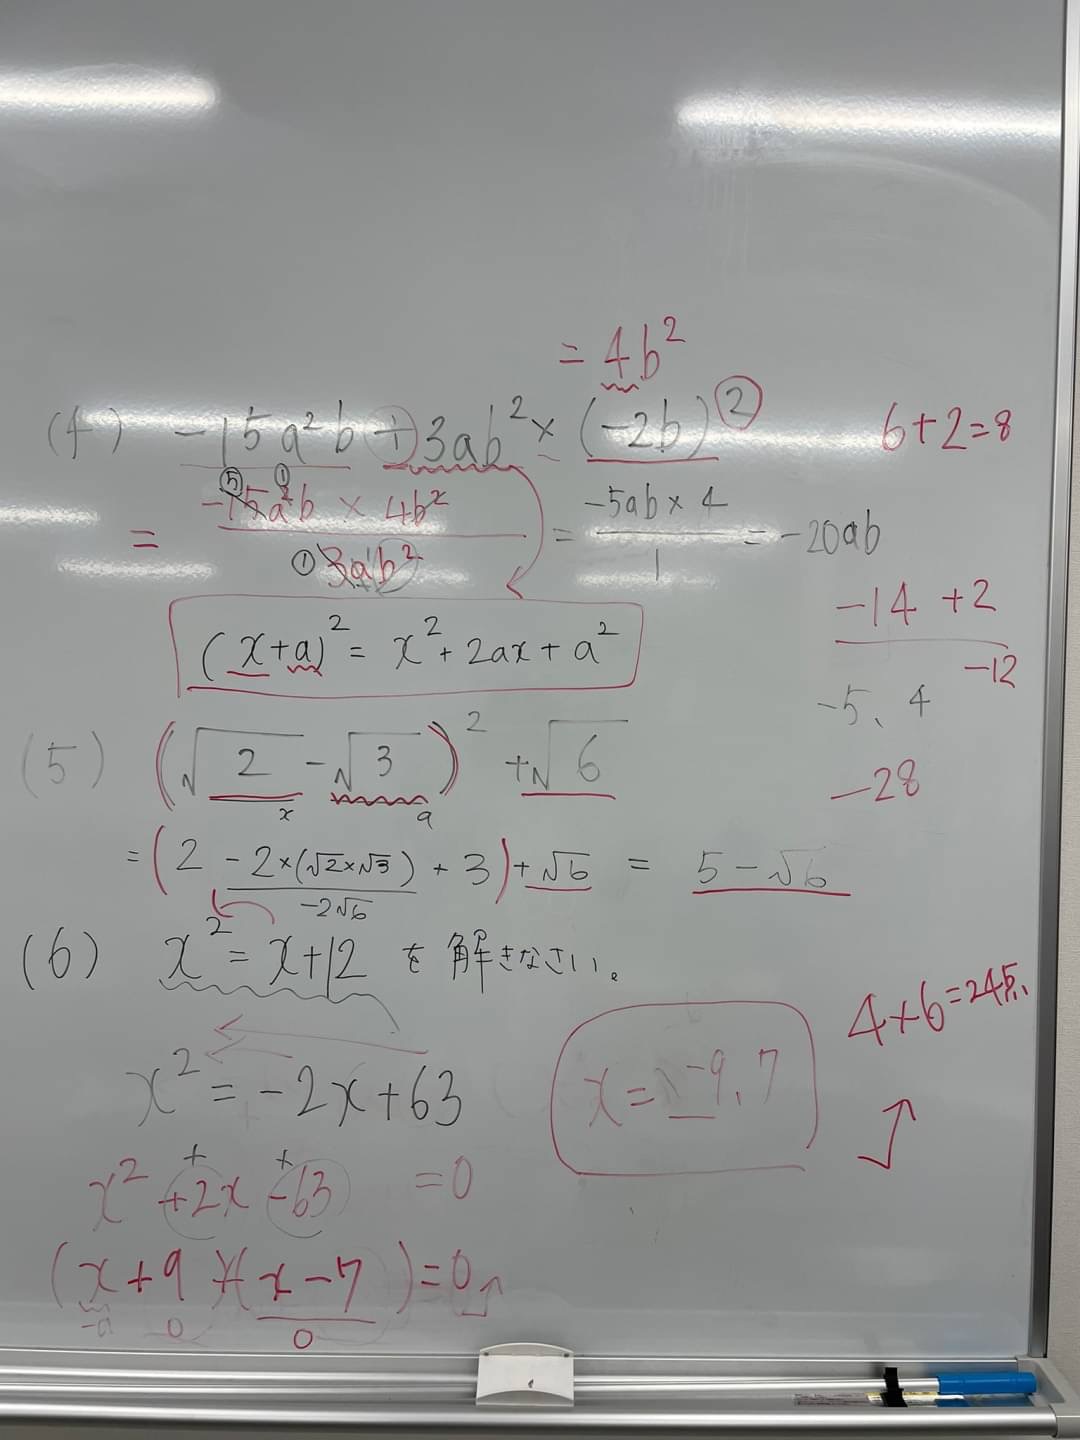 = 4b²
(4) -15a²b ÷ 3ab² × (-2b)²
6+2=8
= -15a²b × 4b² / 3ab² = -5ab × 4 / 1 = -20ab
⑤ ①
①
-14 +2
-12
(x+a)² = x² + 2ax + a²
-5、4
(5) (√2 - √3)² + √6
x a
-28
= (2 - 2×(√2×√3) + 3) + √6 = 5 - √6
-2√6
(6) x² = x+12 を解きなさい。
4×6=24点
x² = -2x+63
x = -9, 7
+ +
x² +2x -63 = 0
(x+9)(x-7)=0
-9 0 0